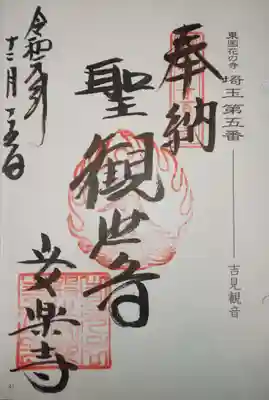 東国花の寺 埼玉 第五番
吉見観音
奉納
聖観世音
安楽寺
令和元年
十二月十五日